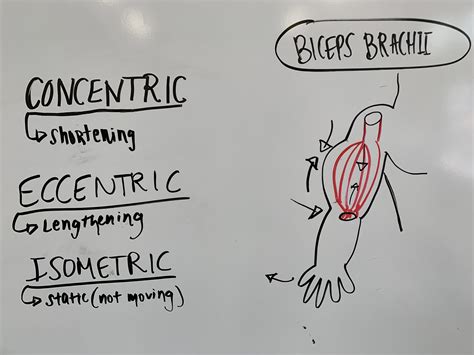 BICEPS BRACHII
CONCENTRIC
shortening
ECCENTRIC
Lengthening
ISOMETRIC
static (not moving)